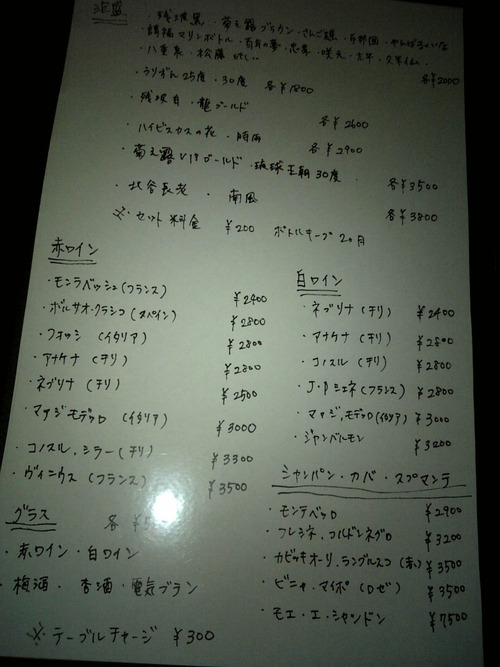 泡盛
・残波黒・菊之露ブラウン・さんご礁・与那国・やんばるくいな
・請福マリンボトル・百年の夢・忠孝・咲元・太平・久米仙・
・八重泉・松藤 etc... 各¥2000
・うりずん25度・30度 各¥1800
・残波白・龍ゴールド 各¥2600
・ハイビスカスの花・時雨 各¥2900
・菊之露VIPゴールド・琉球王朝30度 各¥3500
・北谷長老・南風 各¥3800
※セット料金 ¥200 ボトルキープ2ヶ月
赤ワイン
・モンラベッシュ(フランス) ¥2400
・ボルサオ・クラシコ(スペイン) ¥2800
・フォッシ (イタリア) ¥2800
・アナケナ (チリ) ¥2800
・ネブリナ (チリ) ¥2500
・マァジ・モデッロ (イタリア) ¥3000
・コノスル・シラー(チリ) ¥3300
・ヴィニウス(フランス) ¥3500
白ワイン
・ネブリナ (チリ) ¥2400
・アナケナ (チリ) ¥2800
・コノスル (チリ) ¥2800
・J・Pシェネ(フランス) ¥2800
・マァジ・モデッロ(イタリア) ¥3000
・ジャンバルモン ¥3200
シャンパン・カバ・スプマンテ
・モンテベッロ ¥2900
・フレシネ・コルドンネグロ ¥3200
・カビッキオーリ・ランブルスコ(赤) ¥3500
・ビニャ・マイポ(ロゼ) ¥3500
・モエ・エ・シャンドン ¥7500
グラス 各¥5
・赤ワイン・白ワイン
・梅酒・杏酒・電気ブラン
※テーブルチャージ ¥300